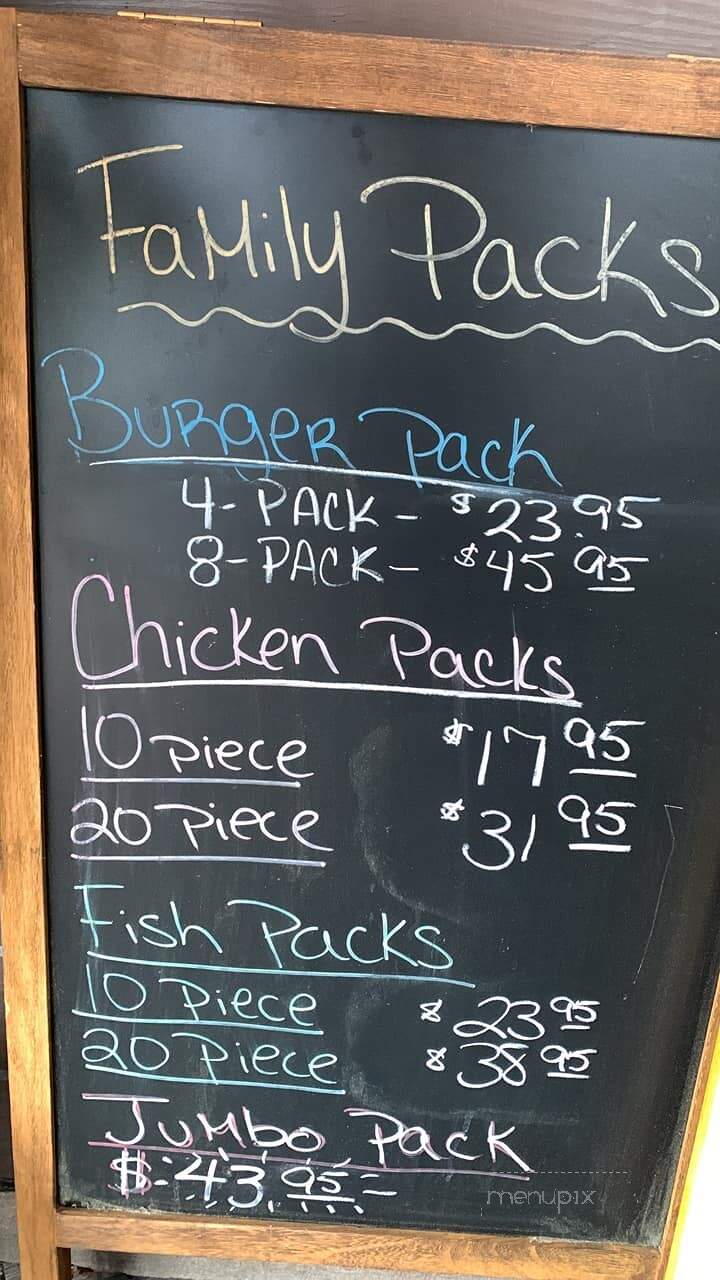 Family Packs
Burger Pack
4-PACK- $23.95
8-PACK- $45 95
Chicken Packs
10 piece $17 95
20 Piece $31 95
Fish Packs
10 Piece $23 95
20 Piece $38 95
Jumbo Pack
$-43.95-
menupix